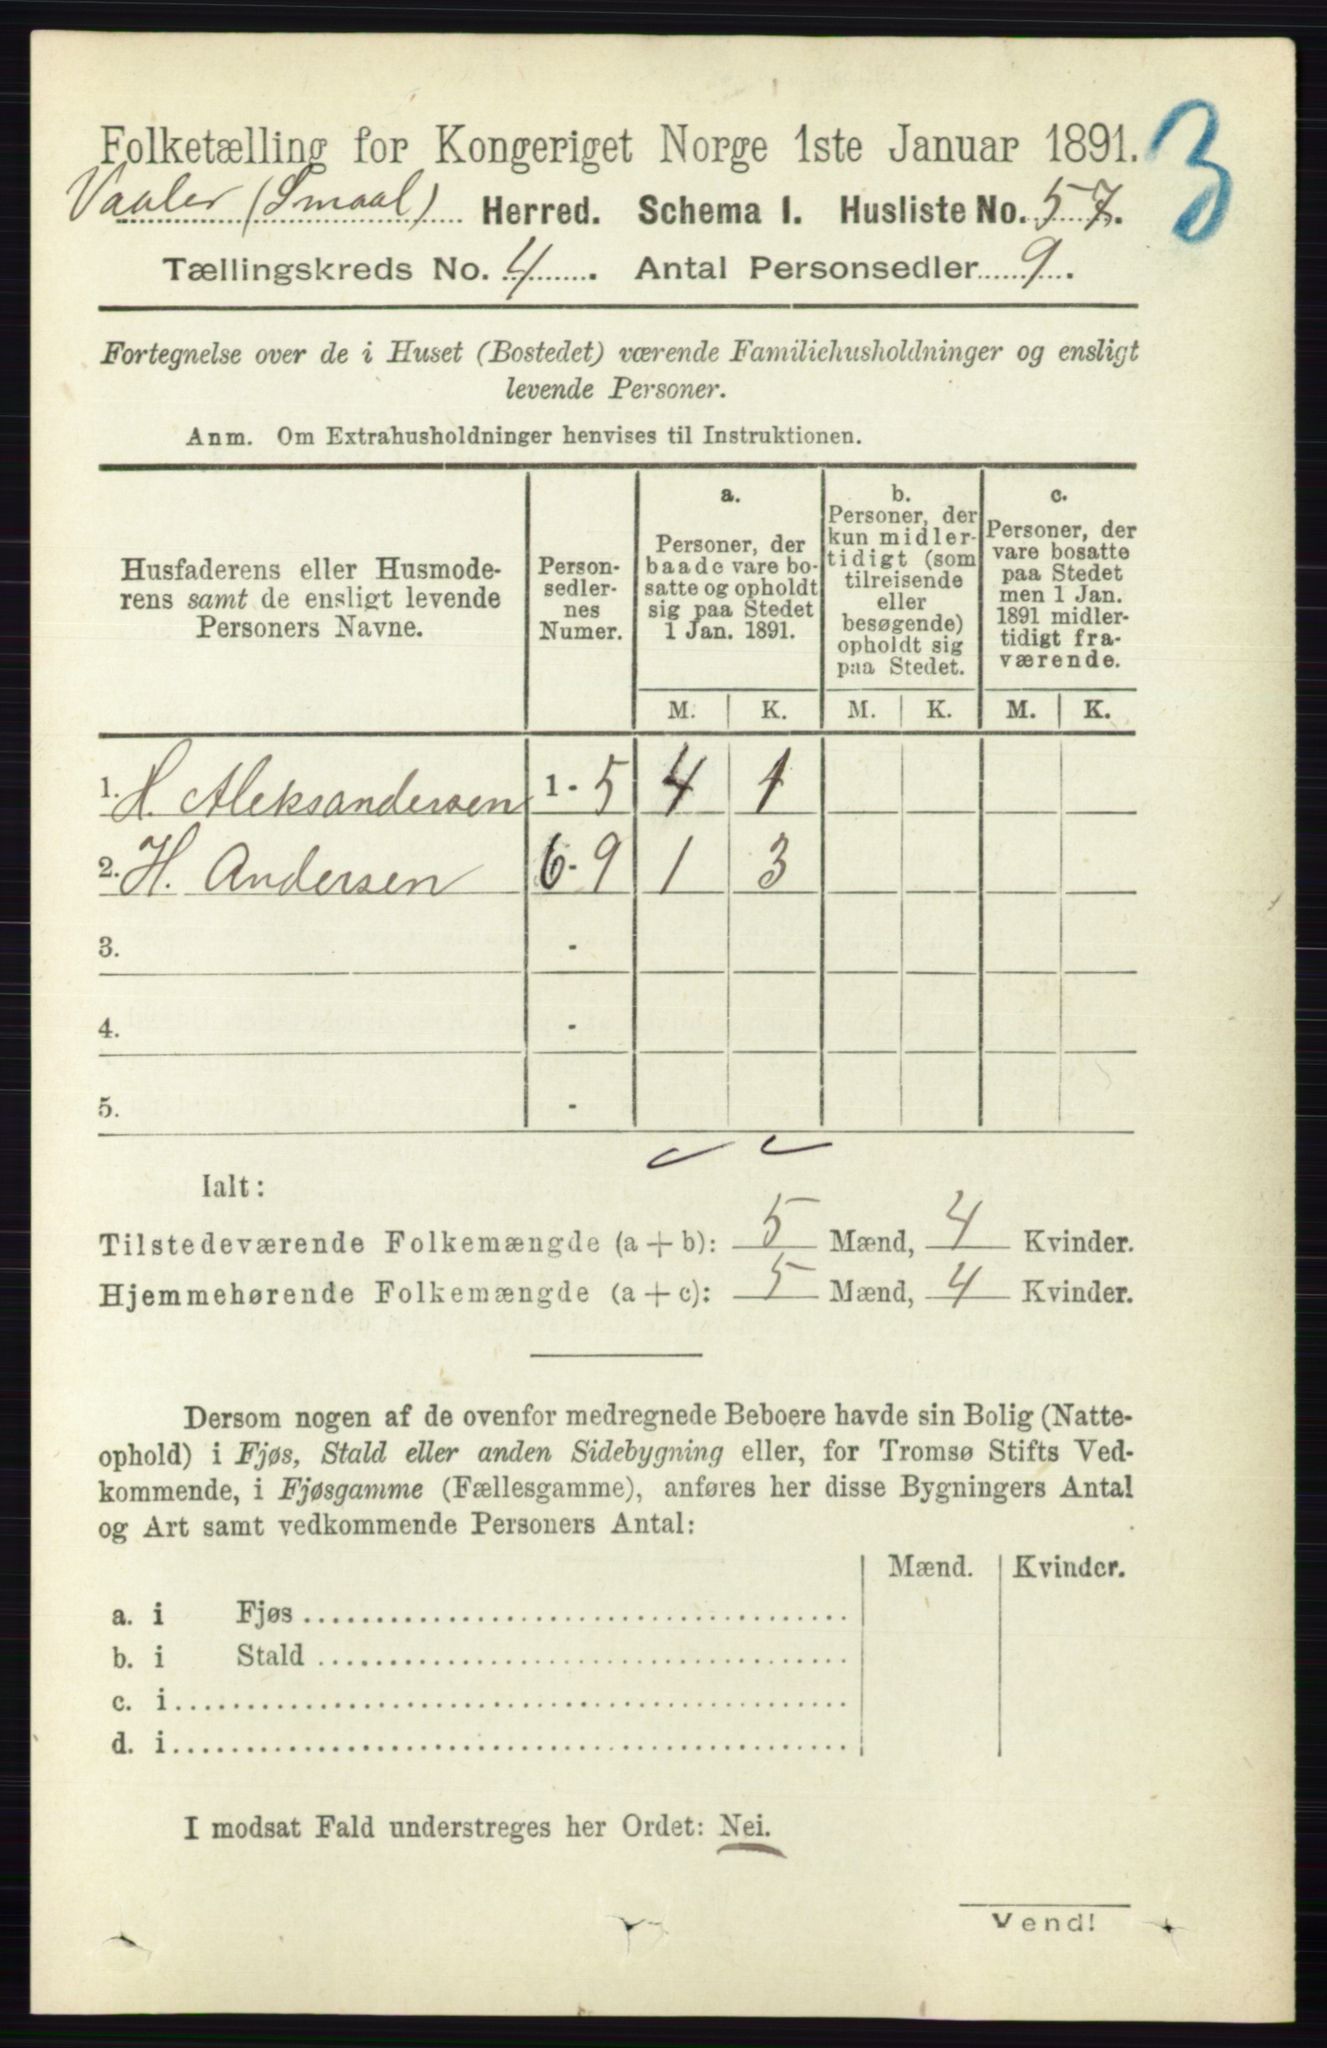 Folketælling for Kongeriget Norge 1ste Januar 1891.
3
Vaaler (Smaal) Herred. Schema I. Husliste No. 57.
Tællingskreds No. 4. Antal Personsedler 9.
Fortegnelse over de i Huset (Bostedet) værende Familiehusholdninger og ensligt
levende Personer.
Anm. Om Extrahusholdninger henvises til Instruktionen.
Husfaderens eller Husmode-
rens samt de ensligt levende
Personers Navne.
Person-
sedler-
nes
Numer.
a.
Personer, der
baade vare bo-
satte og opholdt
sig paa Stedet
1 Jan. 1891.
b.
Personer, der
kun midler-
tidigt (som
tilreisende
eller
besøgende)
opholdt sig
paa Stedet.
c.
Personer, der
vare bosatte
paa Stedet
men 1 Jan.
1891 midler-
tidigt fra-
værende.
M. K. M. K. M. K.
1. H. Aleksandersen 1 - 5 4 1
2. H. Andersen 6 - 9 1 3
3. -
4. -
5. -
Ialt:
Tilstedeværende Folkemængde (a + b): 5 Mænd, 4 Kvinder.
Hjemmehørende Folkemængde (a + c): 5 Mænd, 4 Kvinder.
Dersom nogen af de ovenfor medregnede Beboere havde sin Bolig (Natte-
ophold) i Fjøs, Stald eller anden Sidebygning eller, for Tromsø Stifts Ved-
kommende, i Fjøsgamme (Fællesgamme), anføres her disse Bygningers Antal
og Art samt vedkommende Personers Antal:
Mænd. Kvinder.
a. i Fjøs
b. i Stald
c. i
d. i
I modsat Fald understreges her Ordet: Nei.
Vend!